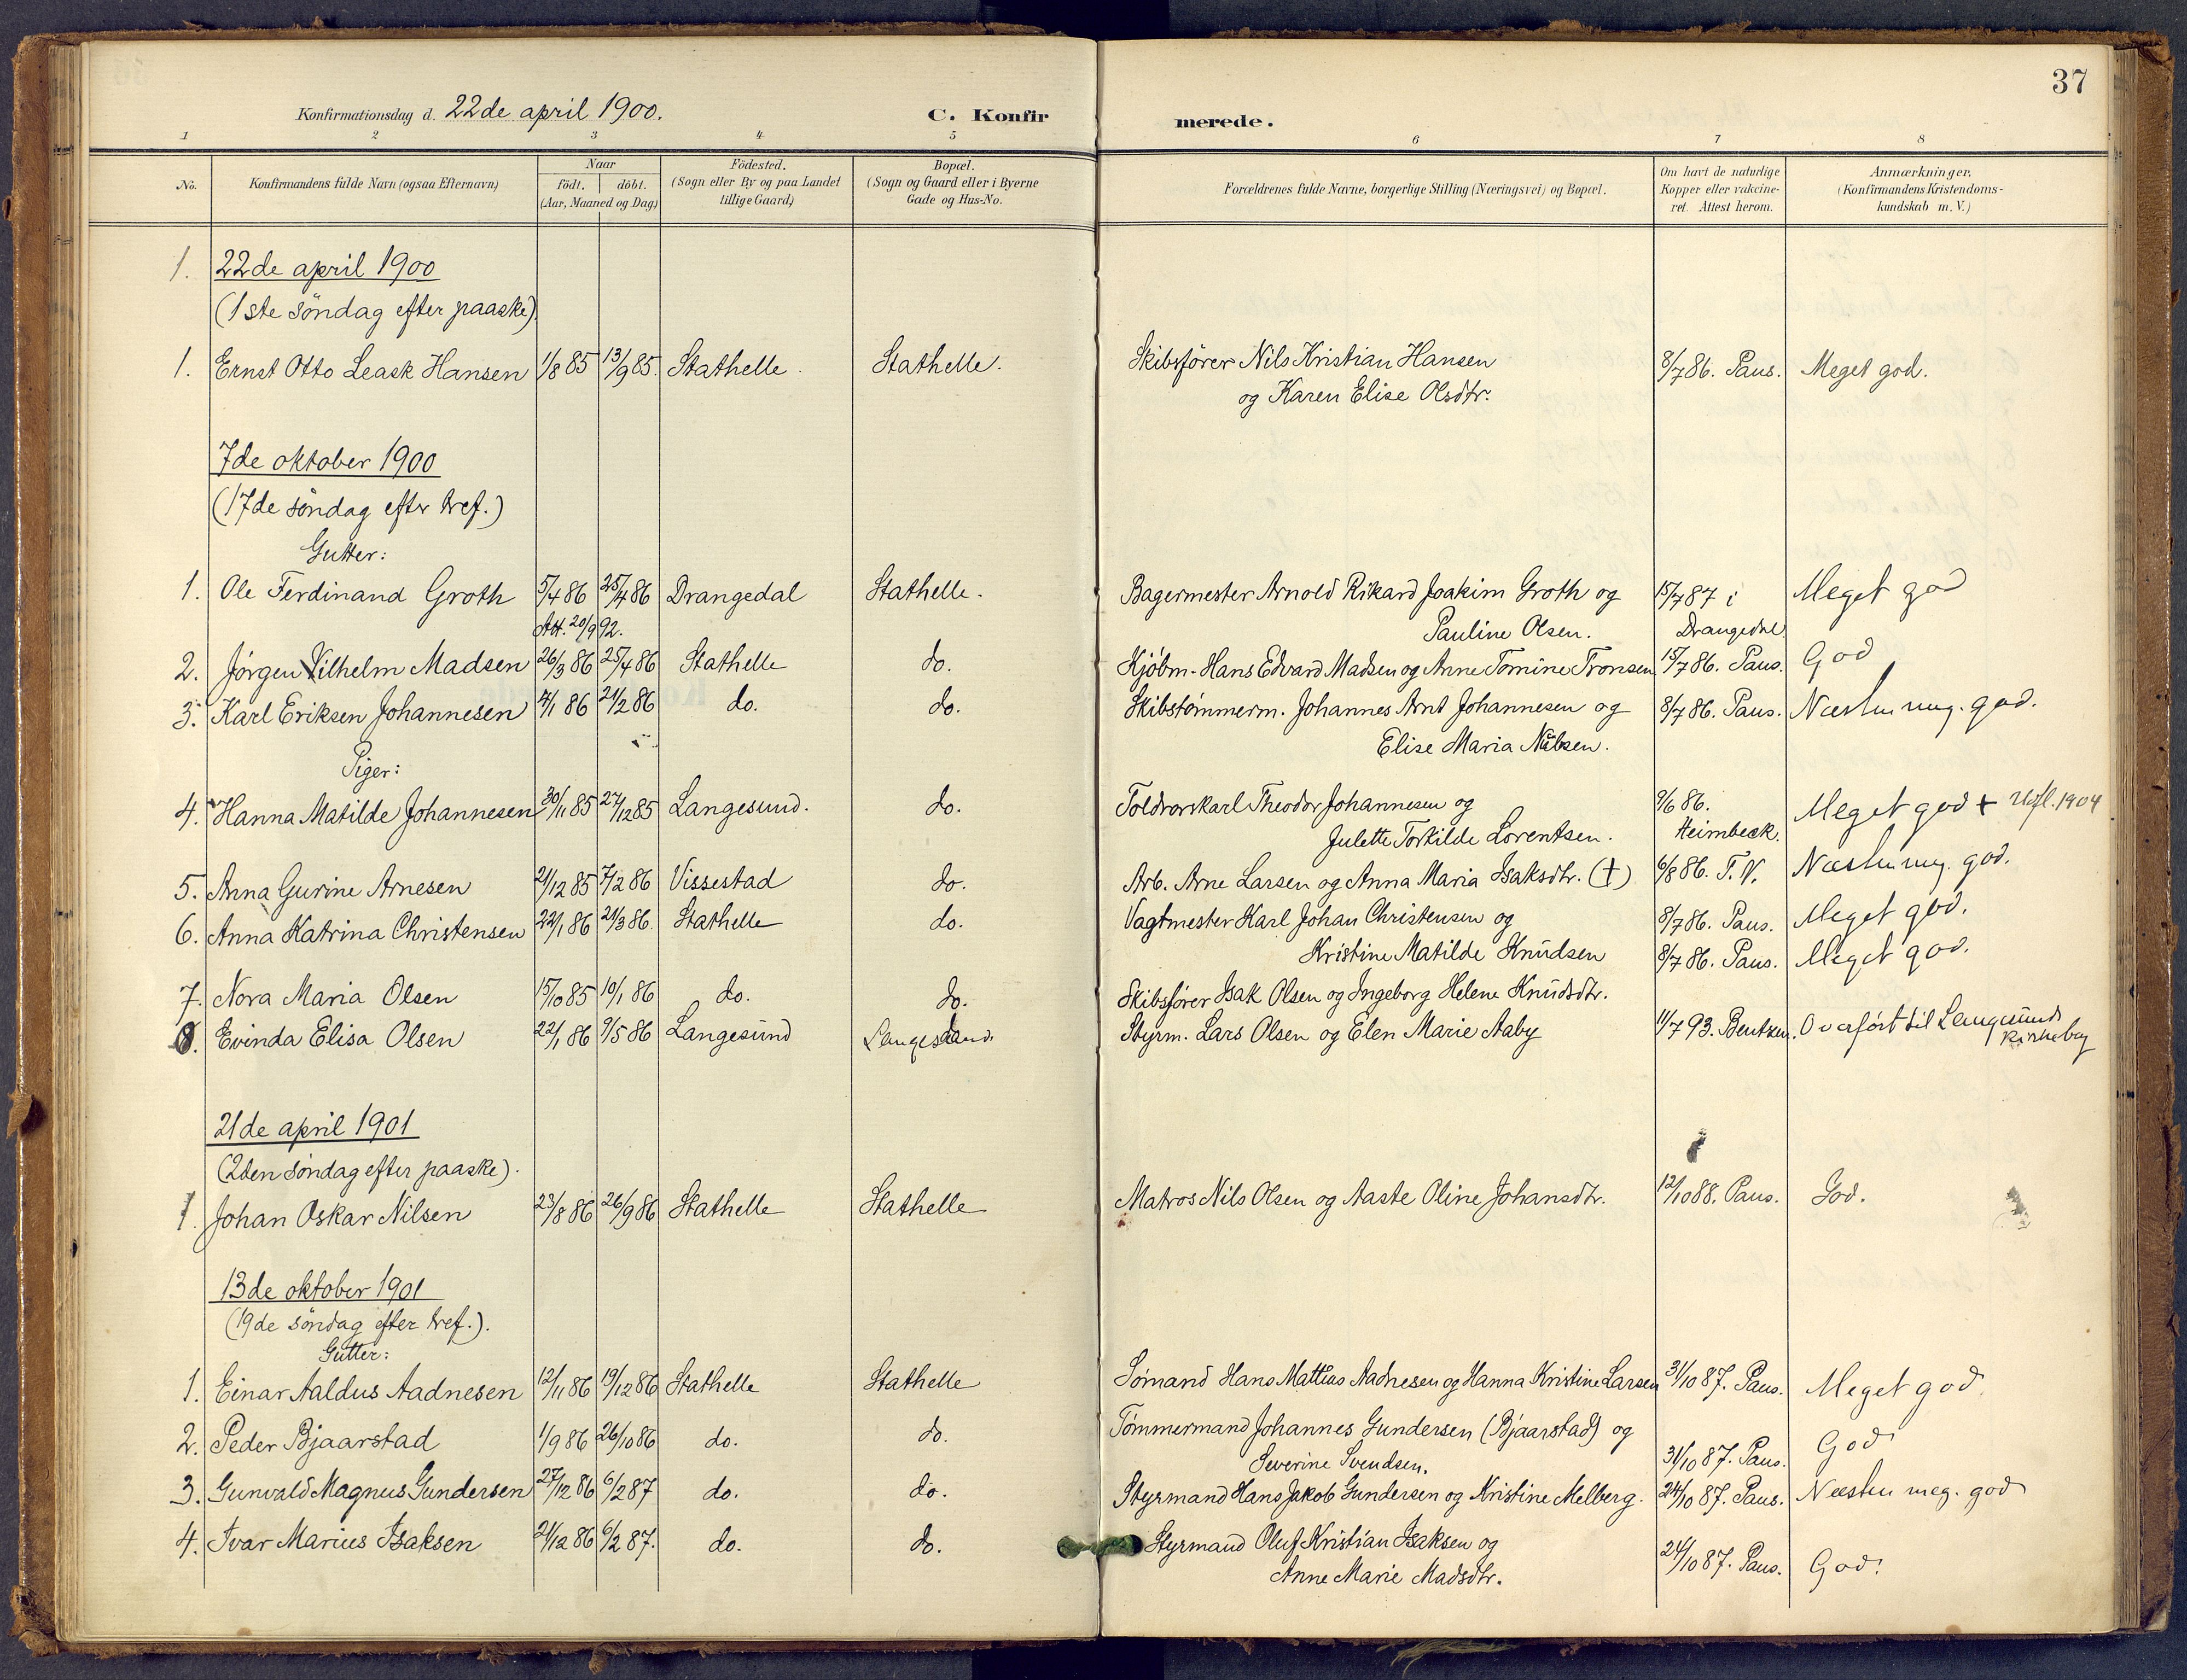 37
Konfirmationsdag d. 22de april 1900.
C. Konfirmerede.
1 2 3 4 5 6 7 8
No.
Konfirmandens fulde Navn (ogsaa Efternavn)
Naar
födt. döbt.
(Aar, Maaned og Dag)
Födested.
(Sogn eller By og paa Landet
tillige Gaard)
Bopæl.
(Sogn og Gaard eller i Byerne
Gade og Hus-No.
Forældrenes fulde Navne, borgerlige Stilling (Næringsvei) og Bopæl.
Om havt de naturlige
Kopper eller vakcine-
ret. Attest herom.
Anmærkninger.
(Konfirmandens Kristendoms-
kundskab m. V.)
1. 22de april 1900
(1ste söndag efter paaske).
1. Ernst Otto Leask Hansen 1/8 85 13/9 85. Stathelle. Stathelle. Skibsförer Nils Kristian Hansen 8/7 86. Paus. Meget god.
og Karen Elise Olsdtr.
7de oktober 1900
(17de söndag efter tref.)
Gutter:
1. Ole Ferdinand Groth 5/4 86 25/4 86 Drangedal Stathelle. Bagermester Arnold Rikard Joakim Groth og 15/7 87 i Meget god
Att. 20/9 92. Pauline Olsen. Drangedal
2. Jørgen Vilhelm Madsen 26/3 86 25/4 86 Stathelle do. Kjöbm. Hans Edvard Madsen og Anne Tomine Tronsen 15/7 86. Paus. God
3. Karl Eriksen Johannesen 4/1 86 21/2 86 do. do. Skibstømmerm. Johannes Arnt Johannesen og 8/7 86. Paus. Næsten meg. god.
Elise Maria
Piger:
4. Hanna Matilde Johannesen 30/11 85 27/12 85 Langesund. do. Toldrorskarl Theodor Johannesen og 9/6 86. Meget god + Utfl. 1904
Julette Torkilde Lorentsen. Heimbeck.
5. Anna Gurine Arnesen 21/12 85 7/2 86 Vissestad do. Arb. Arne Larsen og Anna Maria Isaksdtr. (†) 6/8 86. T. N. Næsten meg. god.
6. Anna Katrina Christensen 22/1 86 21/3 86. Stathelle do. Vagtmester Karl Johan Christensen og 8/7 86. Paus. Meget god.
Kristine Matilde Knudsen 8/7 86. Paus. Meget god.
7. Nora Maria Olsen 15/10 85 10/1 86 do. do. Skibsfører Isak Olsen og Ingeborg Helene Knudsdtr.
8. Evinda Elisa Olsen 22/1 86 9/5 86 Langesund Langesund. Styrm. Lars Olsen og Elen Marie Aaby 11/7 93. Bentzen. Overført til Langesund
kirkebog
21de april 1901
(2den söndag efter paaske).
1. Johan Oskar Nilsen 23/8 86 26/9 86 Stathelle Stathelle Matros Nils Olsen og Aaste Oline Johansdtr. 12/10 88. Paus. God.
13de oktober 1901
(19de söndag efter tref.).
Gutter:
1. Einar Aaldus Aadnesen 12/11 86 19/12 86 Stathelle Stathelle Sømand Hans Mattias Aadnesen og Hanna Kristine Larsen 31/10 87. Paus. Meget god.
2. Peder Bjaarstad 1/9 86 26/10 86 do. do. Tømmermand Johannes Gundersen (Bjaarstad) og
Severine Svendsen. 31/10 87. Paus. God
3. Gunvald Magnus Gundersen 27/12 86 6/2 87 do. do. Styrmand Hans Jakob Gundersen og Kristine Melberg. 24/10 87. Paus. Næsten meg. god
4. Ivar Marius Isaksen 21/12 86 6/2 87. do. do. Styrmand Oluf Kristian Isaksen og
Anne Marie Madsdtr. 24/10 87. Paus. God.